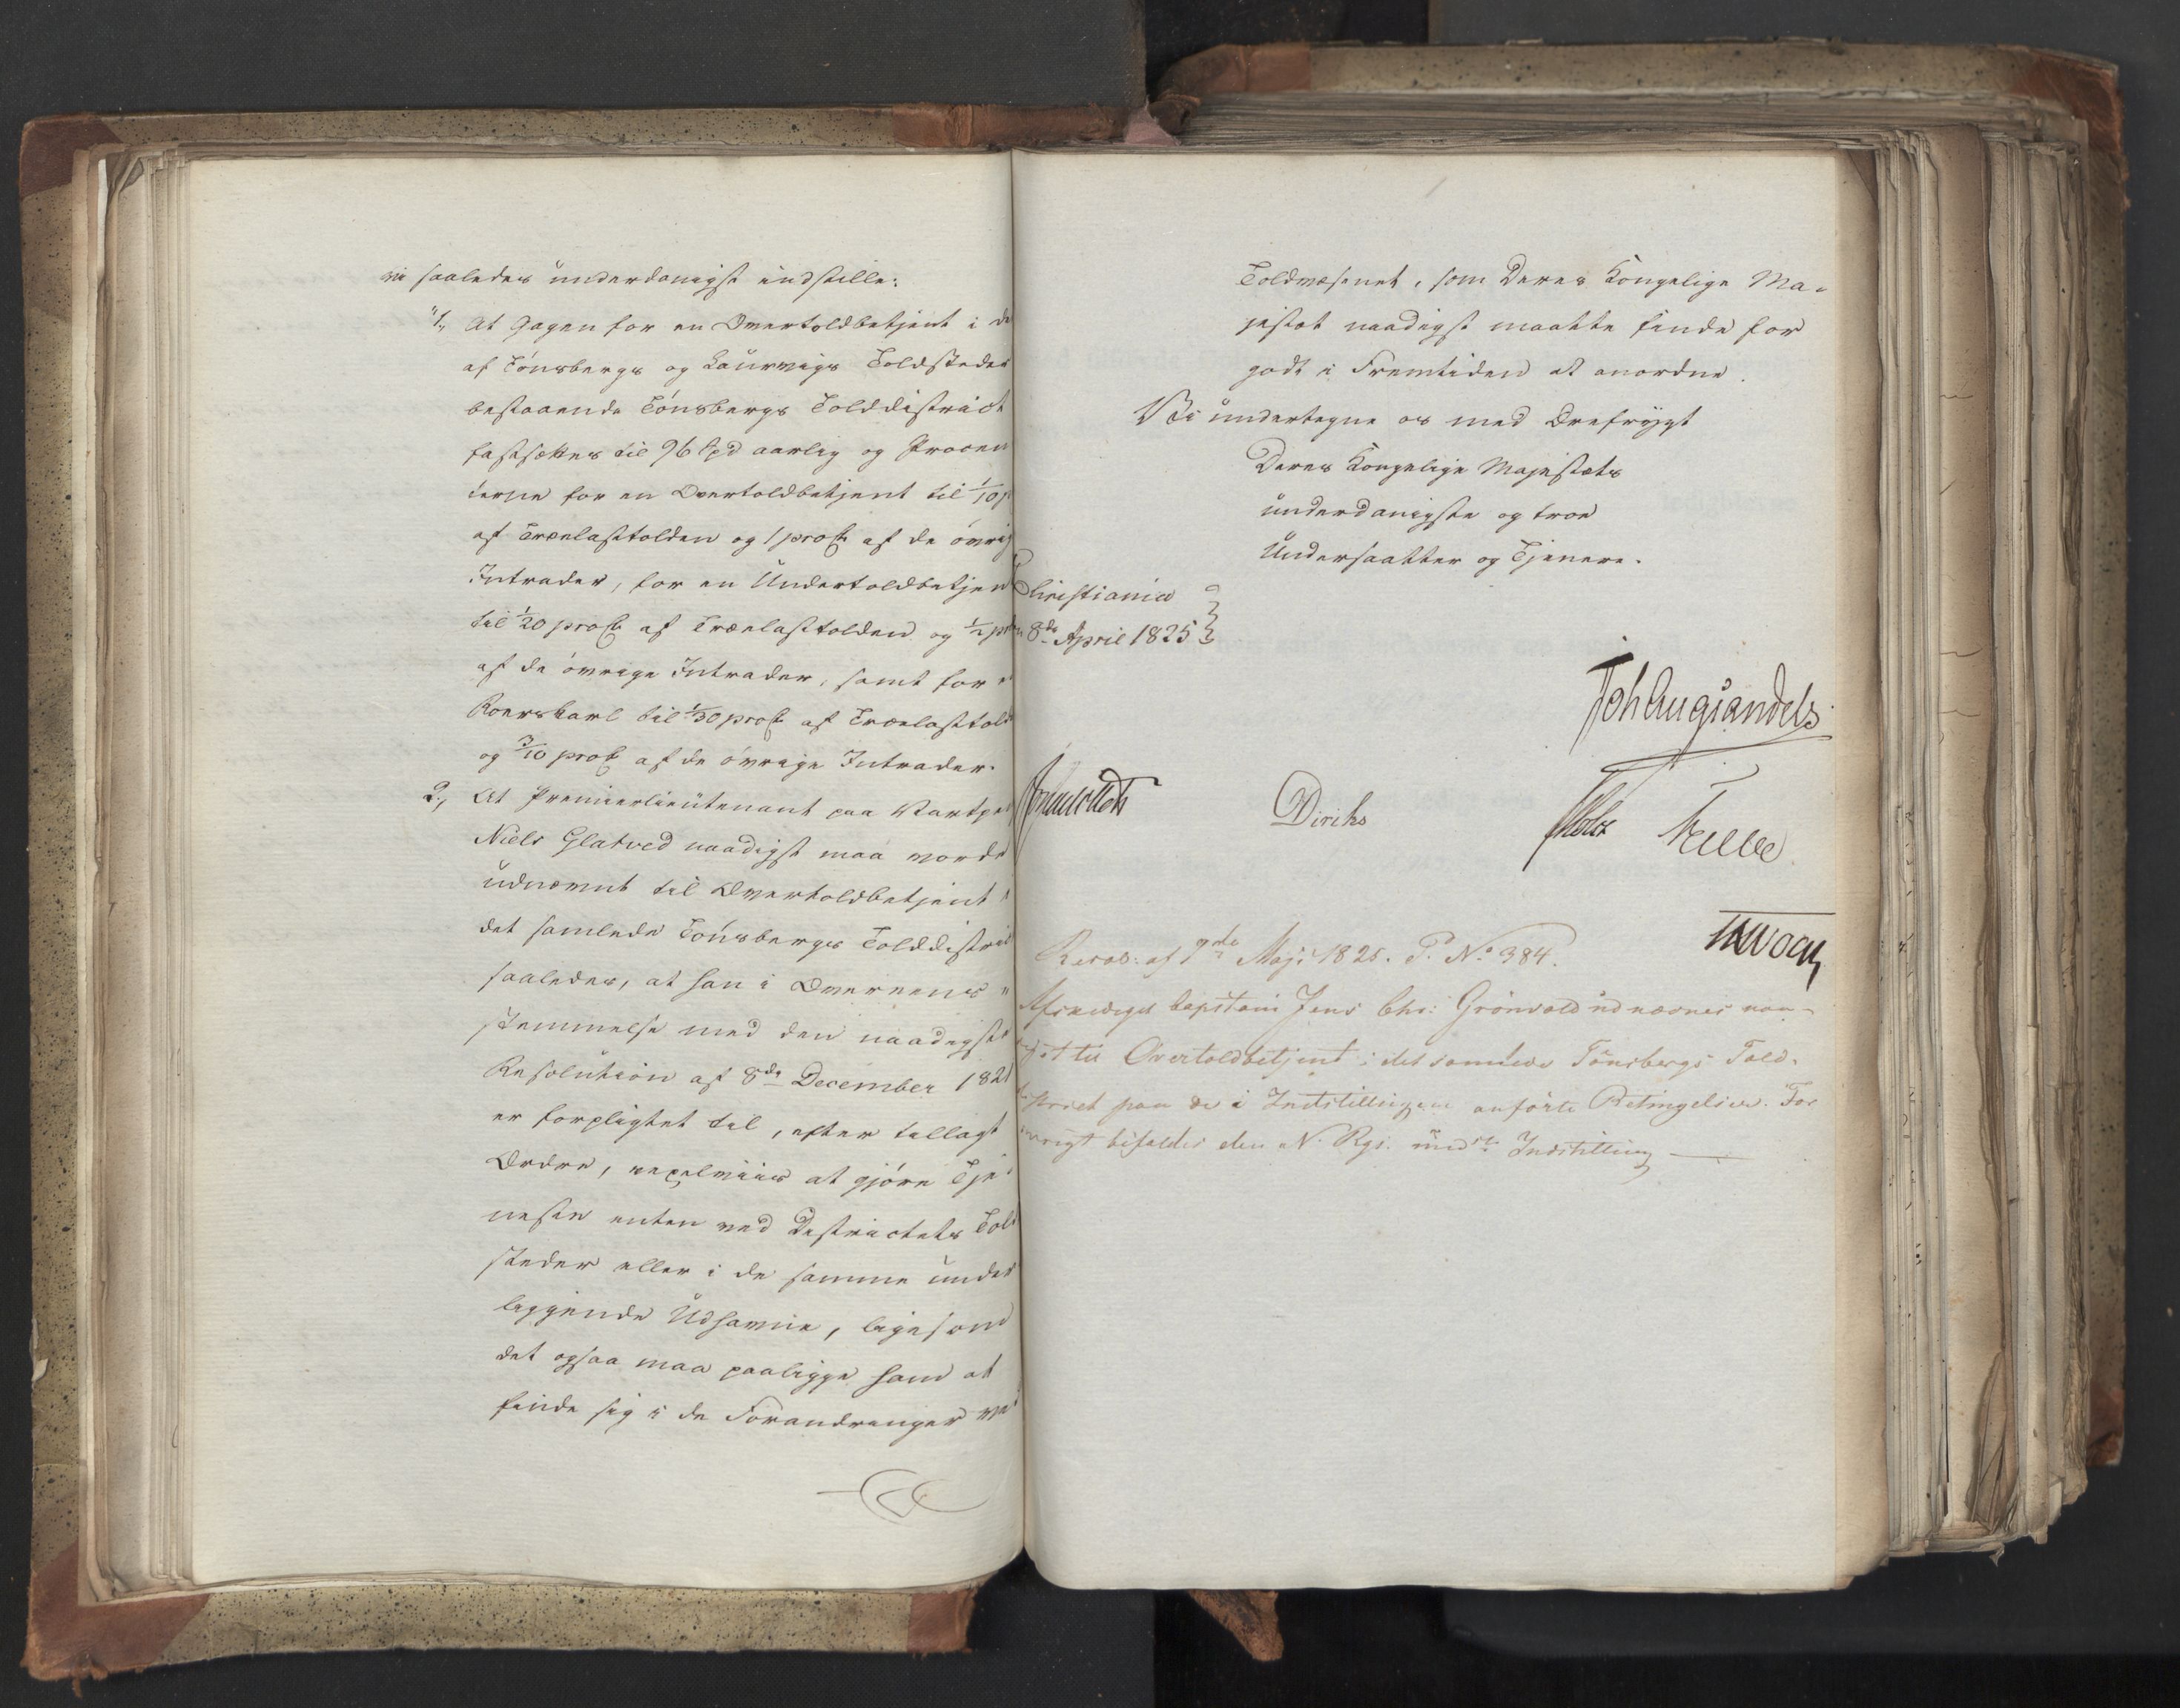 vi saaledes underdanigst indstille:
"1, At Gagen for en Overtoldbetjent i de
af Tönsbergs og Laurvigs Toldsteder
bestaaende Tönsbergs Tolddistrict
fastsættes til 96 Spd aarlig og Procen
terne for en Overtoldbetjent til 1/10 p
af Trælasttolden og 1 proCt af de övrig
Intrader, for en Undertoldbetjen
til 1/20 proCt af Trælasttolden og 1/2 pro
af de övrige Intrader, samt for e
Roerskarl til 1/30 proCt af Trælasttold
og 3/10 proCt af de övrige Intrader.
2, At Premierlieutenant paa Vartpen
Niels Glatved naadigst maa vorde
udnævnt til Overtoldbetjent i
det samlede Tönsbergs Tolddistric
saaledes, at han i Overeens
stemmelse med den naadigste
Resolution af 8de December 1821
er forpligtet til, efter tillagt
Ordre, vexelviis at gjöre Tje
neste enten ved Districtets Told
steder eller i de samme under
liggende Udhavne, ligesom
det ogsaa maa paaligge ham at
finde sig i de Forandringer ve
Toldvæsenet, som Deres Kongelige Ma-
jestæt naadigst maatte finde for
godt i Fremtiden at anordne.
Vi undertegne os med Ærefrygt
Deres Kongelige Majestæts
underdanigste og troe
Undersaatter og Tjenere.
Christiania
8de April 1825
Joh Aug Sandels
Diriks
Holst
Resol: af 7de Maji 1825. P. No 384.
Afskediget Capitain Jens Chr: Grönvold udnævnes naa-
digst til Overtoldbetjent i det samlede Tönsbergs Told-
district paa de i Indstillingen anförte Betingelser. For
övrigt bifaldes den N. Rgs. undte Indstilling